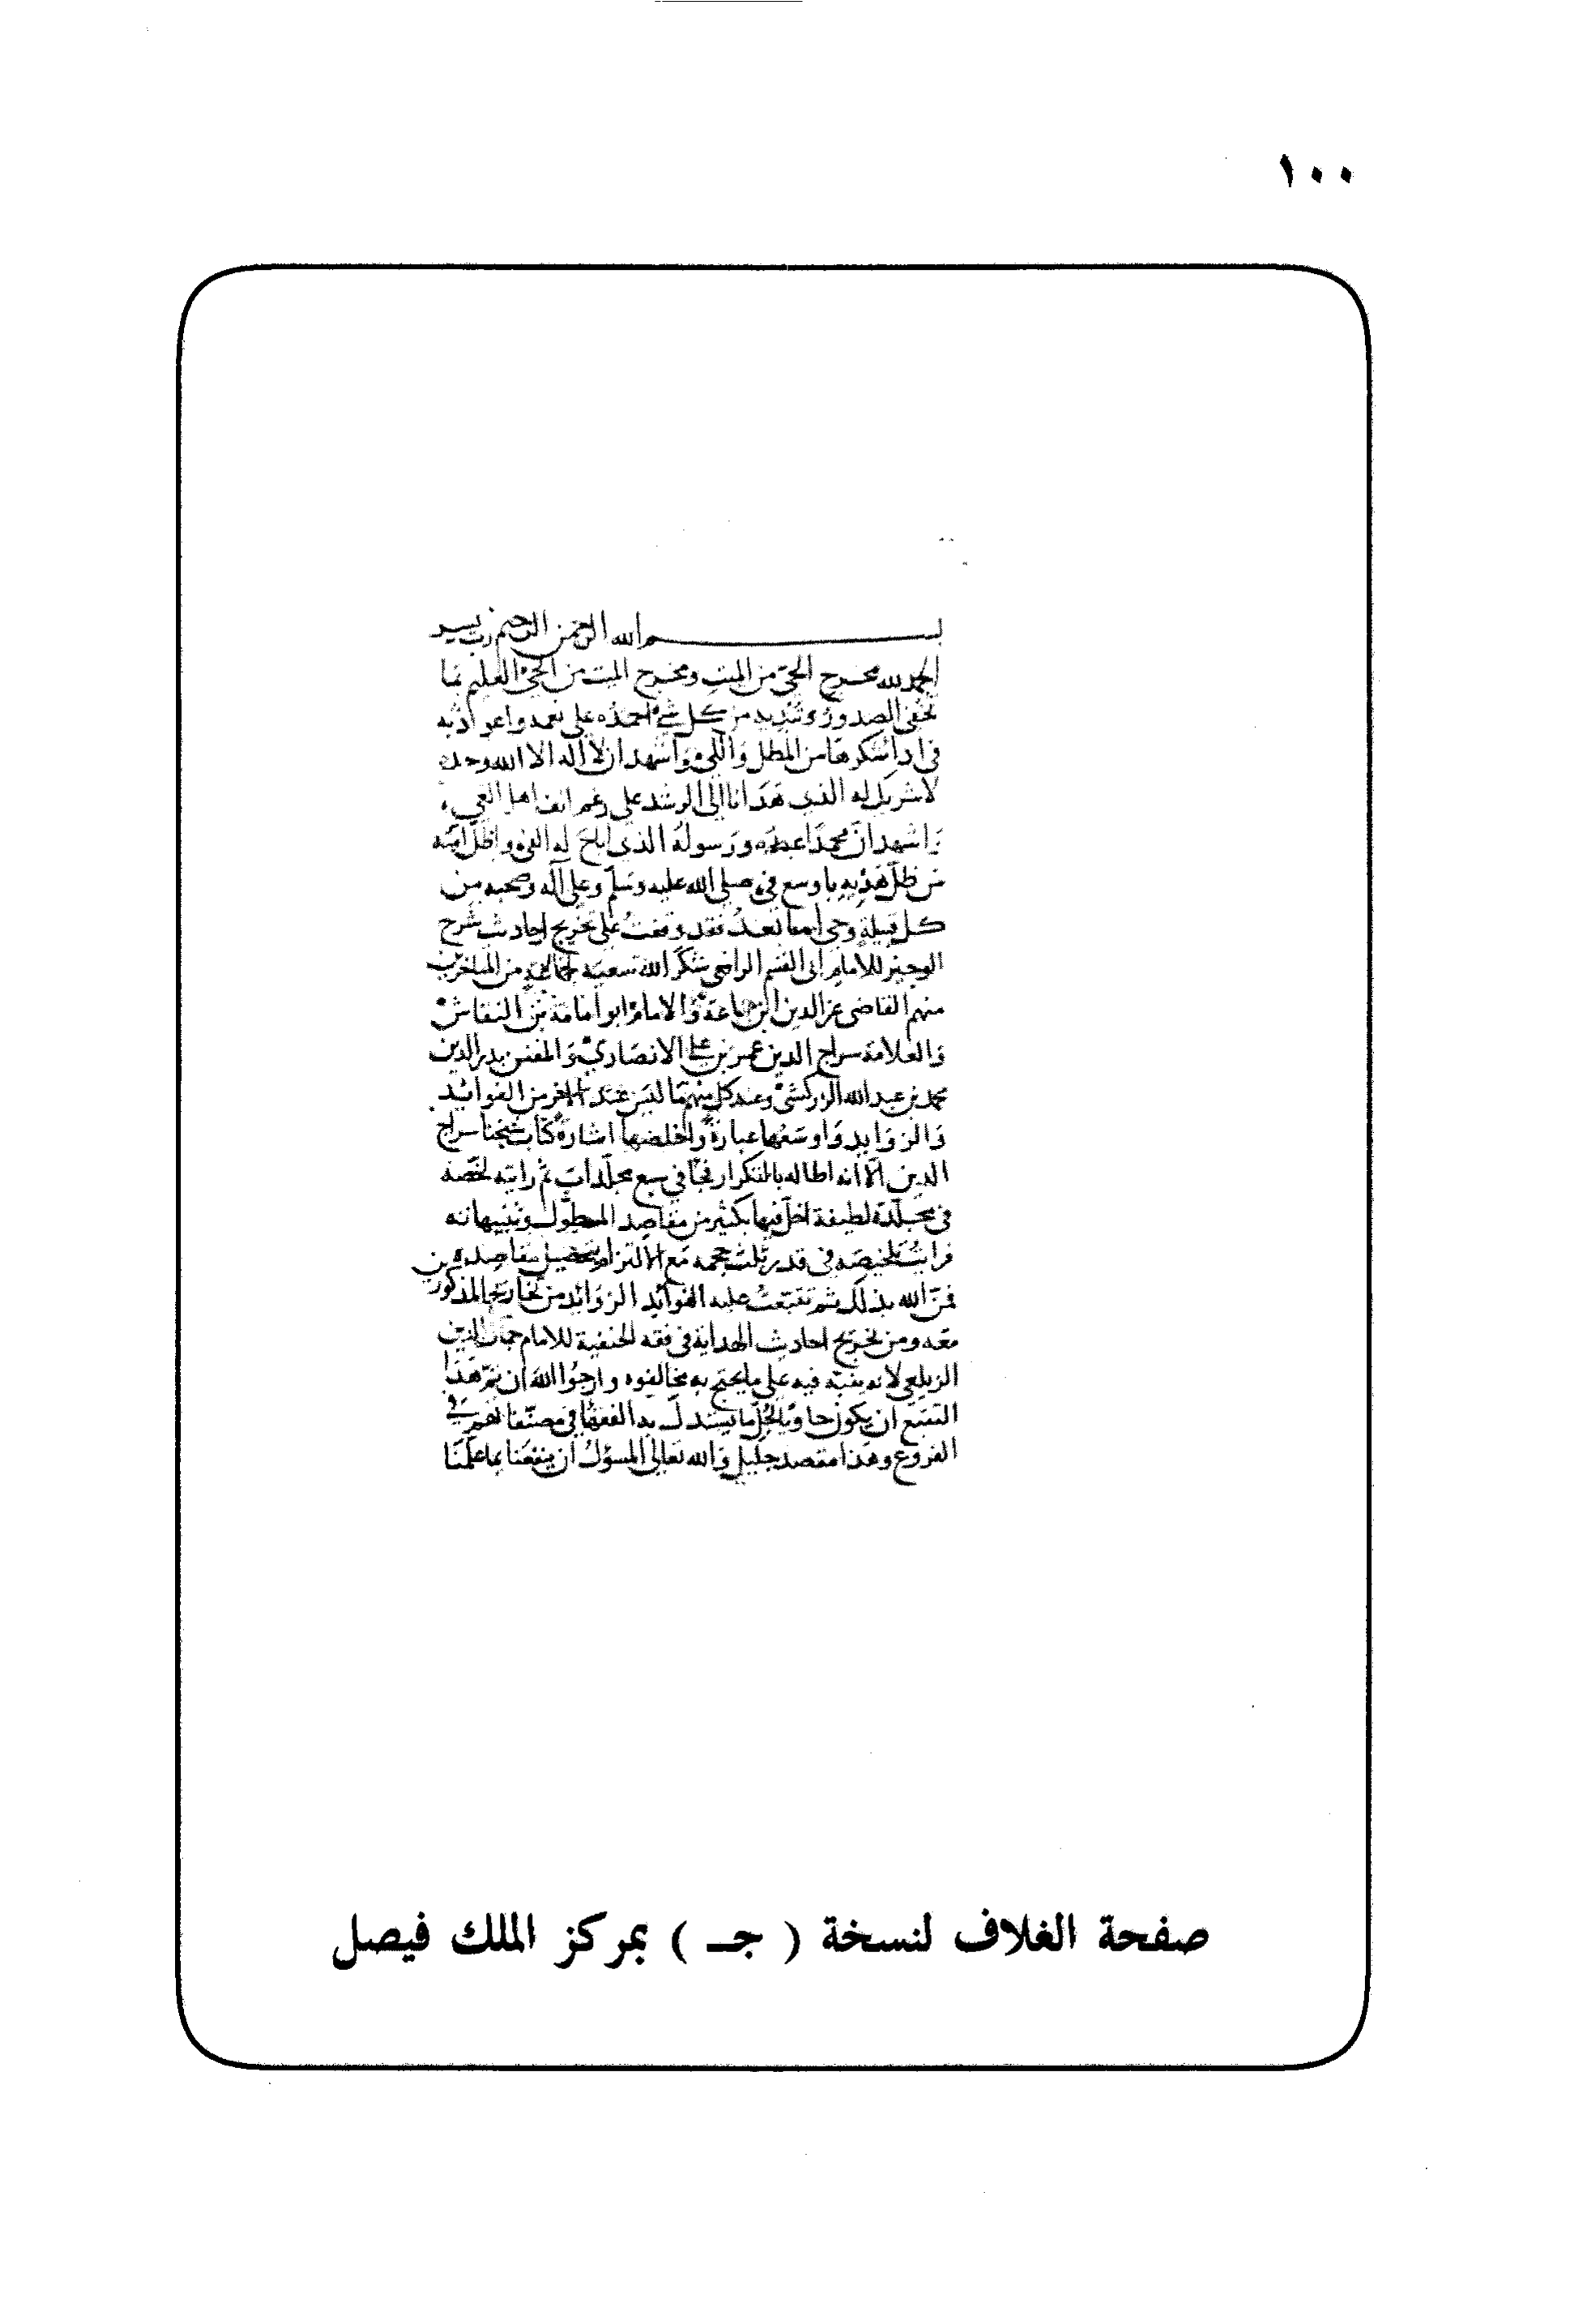 ١٠٠
بسم الله الرحمن الرحيم رب يسر
الحمد لله مخرج الحي من الميت ومخرج الميت من الحي العليم بما
تخفي الصدور من كل شيء احمده على نعمه واعوذ به
في اداء شكرها من المطل واللي واشهد ان لا اله الا الله وحده
لا شريك له الذي هدانا الى الرشد على رغم انف اهل الغي
واشهد ان محمدا عبده ورسوله الذي اباح له الفيء واظل امته
من ظل هديه باوسع فيء صلى الله عليه وسلم وعلى آله وصحبه من
كل قبيلة وحي اما بعد فقد وقفت على تخريج احاديث شرح
الوجيز للامام ابي القسم الرافعي شكر الله سعيه لجماعة من المتاخرين
منهم القاضي عز الدين ابن جماعة والامام ابو امامة بن النقاش
والعلامة سراج الدين عمر بن علي الانصاري والمفتي بدر الدين
محمد بن عبد الله الزركشي وعند كل منهم ما ليس عند الاخر من الفوائد
والزوايد واوسعها عبارة واخلصها اشارة كتاب شيخنا سراج
الدين الا انه اطاله بالتكرار فجا في سبع مجلدات ثم رايته لخصه
في مجلدة لطيفة اخل فيها بكثير من مقاصد المطول وتنبيهاته
فرايت تلخيصه في قدر ثلث حجمه مع الالتزام بتحصيل مقاصده
فمن الله بذلك ثم تتبعت عليه الفوائد الزوائد من تخاريج المذكورين
معه ومن تخريج احاديث الهداية في فقه الحنفية للامام جمال الدين
الزيلعي لانه ينبه فيه على ما يحتج به مخالفوه وارجوا الله ان تم هذا
التتبع ان يكون حاويا لجل ما يستدل به الفقها في مصنفاتهم في
الفروع وهذا مقصد جليل والله تعالى المسؤل ان ينفعنا بما علمنا
صفحة الغلاف لنسخة ( جـ ) بمركز الملك فيصل